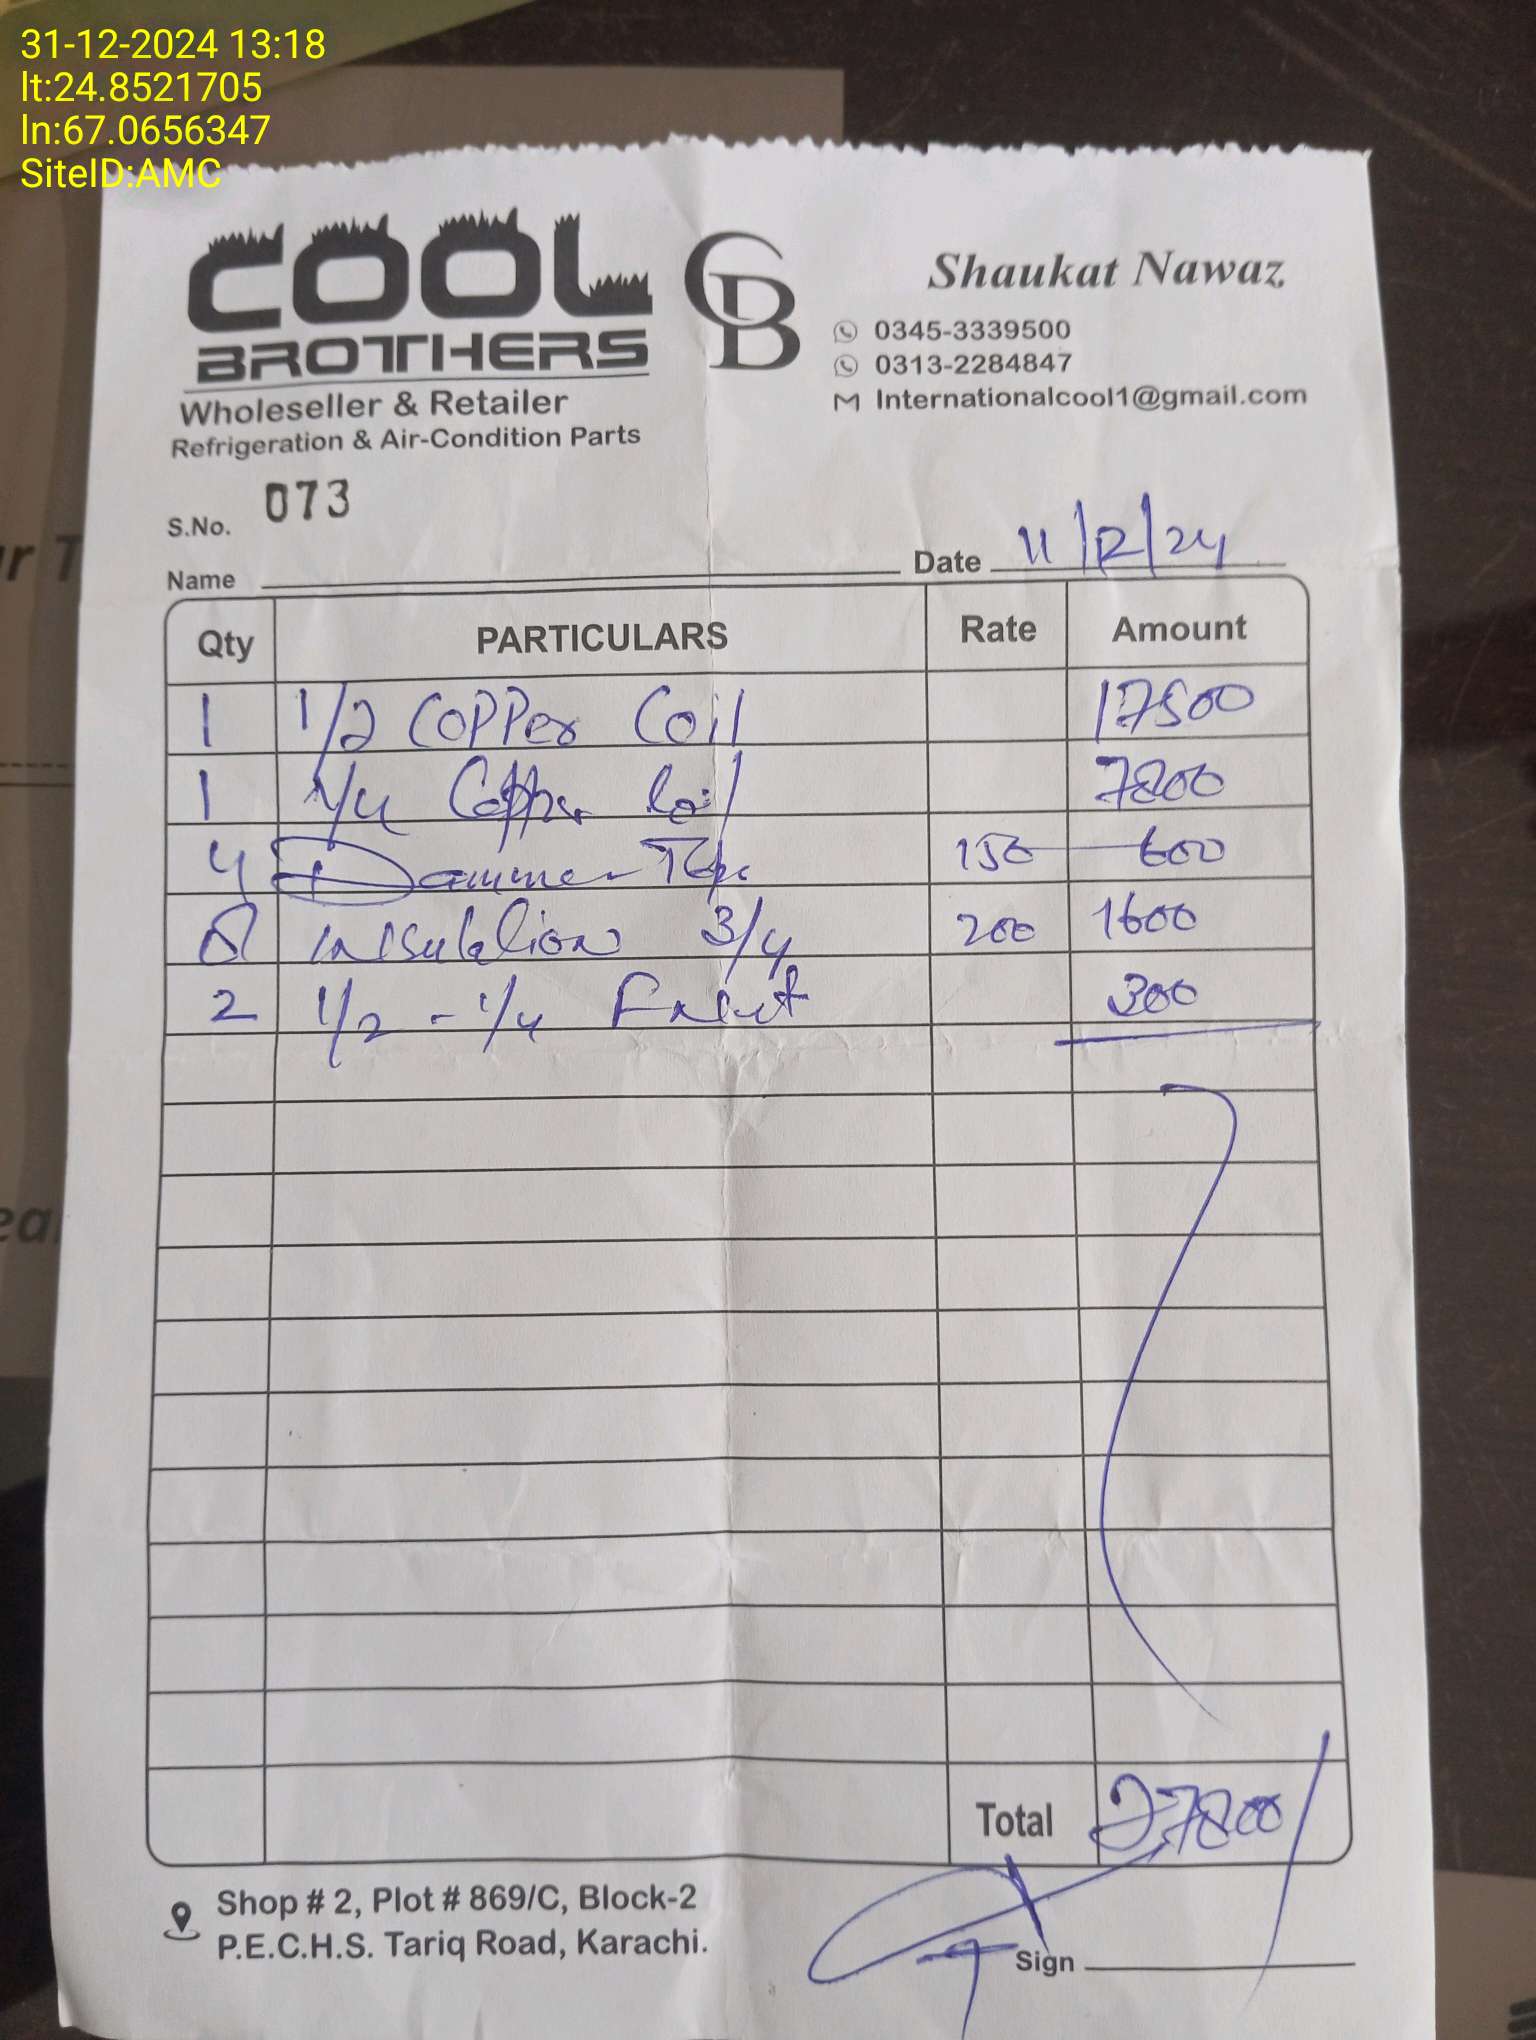 31-12-2024 13:18
lt:24.8521705
ln:67.0656347
SiteID:AMC
COOL
BROTHERS
Wholeseller & Retailer
Refrigeration & Air-Condition Parts
CB
Shaukat Nawaz
0345-3339500
0313-2284847
Internationalcool1@gmail.com
S.No. 073
Name
Date 11/12/24
Qty PARTICULARS Rate Amount
1 1/2 Copper Coil 17500
1 1/4 Copper Coil 7800
4 Dammer Tape 150 600
8 insulation 3/4 200 1600
2 1/2 - 1/4 300
Total 27800
Shop # 2, Plot # 869/C, Block-2
P.E.C.H.S. Tariq Road, Karachi.
Sign